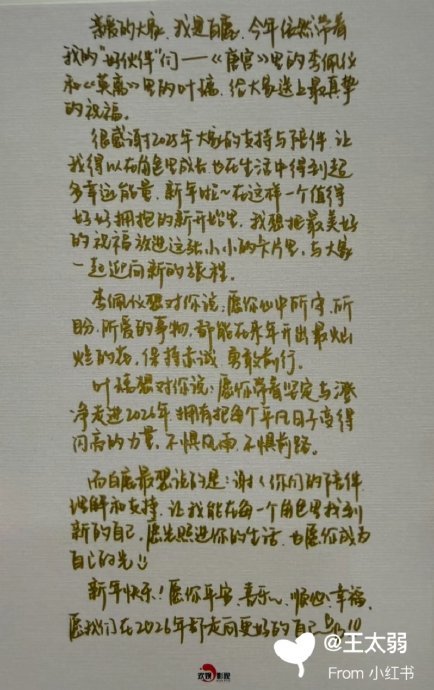 亲爱的大家，我是白鹿，今年依然带着
我的“好伙伴”们——《唐宫》里的李佩仪
和《莫离》里的叶璃，给大家送上最真挚
的祝福。
很感谢2025年大家的支持与陪伴，让
我得以在角色里成长也在生活中得到超
多幸运能量，新年啦~在这样一个值得
好好拥抱的新开始里，我想把最美好
的祝福放进这张小小的卡片里，与大家
一起迎向新的旅程。
李佩仪想对你说：愿你心中所守、所
盼、所爱的事物，都能在来年开出最灿
烂的花，保持赤诚，勇敢前行。
叶璃想对你说：愿你带着坚定与澄
净走进2026年，拥有把每个平凡日子变得
闪亮的力量，不惧风雨，不惧前路。
而白鹿最想说的是：谢谢你们的陪伴，
理解和支持，让我能在每一个角色里找到
新的自己，愿光照进你的生活，也愿你成为
自己的光
新年快乐！愿你平安、喜乐、顺心、幸福，
愿我们在2026年都走向更好的自己
欢娱影视
@王太弱
From 小红书